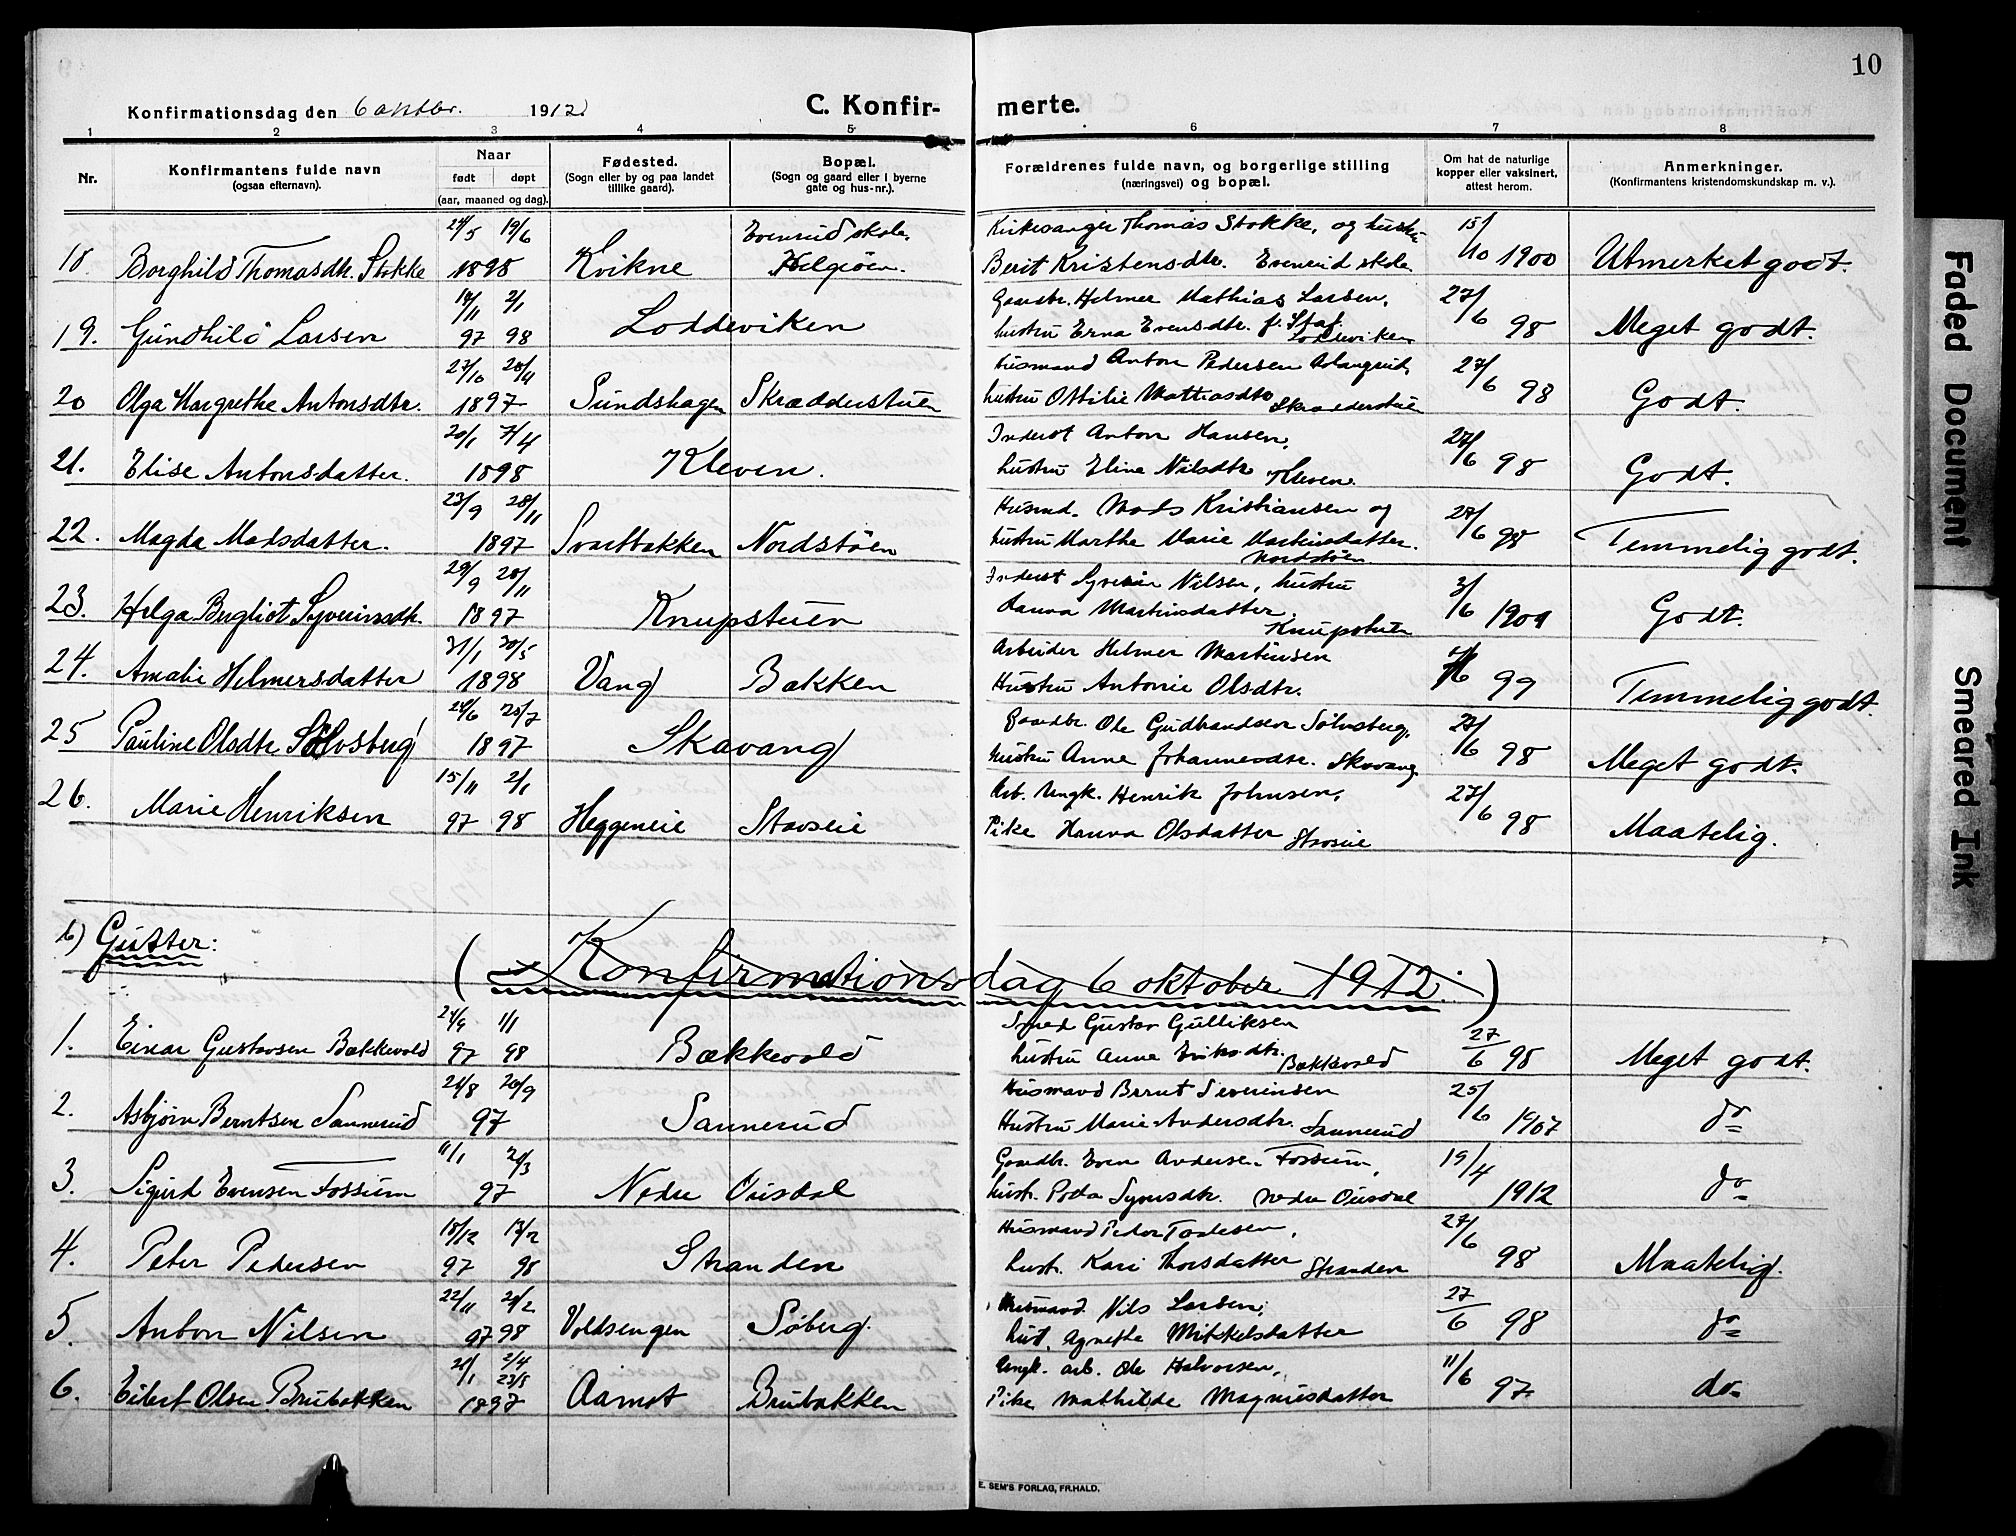 10
Konfirmationsdag den 6 oktbr. 1912
C. Konfirmerte.
1 2 3 4 5 6 7 8
Nr.
Konfirmantens fulde navn
(ogsaa efternavn).
Naar
født døpt
(aar, maaned og dag).
Fødested.
(Sogn eller by og paa landet
tillike gaard).
Bopæl.
(Sogn og gaard eller i byerne
gate og hus-nr.).
Forældrenes fulde navn, og borgerlige stilling
(næringsvei) og bopæl.
Om hat de naturlige
kopper eller vaksinert,
attest herom.
Anmerkninger.
(Konfirmantens kristendomskundskap m. v.).
24/5 19/6 Evenrud skole. Kirkesanger Thomas Stokke, og hustru 15/
18. Borghild Thomasdtr. Stokke 1898 Kvikne Helgøen. Berit Kristensdtr. Evenrud skole 10 1900 Utmerket godt.
14/11 2/1 Gaardbr. Helmer Mathias Larsen, 27/6
19. Gundhild Larsen 97 98 Loddeviken hustru Erna Evensdtr. f. Staf. Loddeviken 98 Meget godt.
27/10 28/11 Husmand Anton Pedersen 27/6
20 Olga Margrethe Antonsdtr. 1897 Sundshagen Skrædderstuen hustru Ottilie Mathiasdtr Skrædderstuen 98 Godt.
20/1 Inderst Anton Hansen, 27/6
21. Elise Antonsdatter. 1898 Kleven. hustru Eline Nilsdtr Kleven. 98 Godt.
23/9 28/11 Husmd. Mads Kristiansen og 27/6
22. Magda Madsdatter. 1897 Svartbakken Nordstøen hustru Marthe Marie Martinsdatter. Nordstøen 98 Temmelig godt.
29/9 28/11 Inderst Syverin Nilsen, hustru 3/6
23. Helga Bergliot Syverinsdtr. 1897 Knupstuen Hanna Martinsdatter, Knupstuen 1901 Godt.
31/1 30/5 Arbeider Helmer Martinsen
24. Amalie Helmersdatter 1898 Vang Bakken Hustru Antonie Olsdtr. 99 Temmelig godt.
24/6 25/7 Gaardbr. Ole Gudbrandsen Sølvsberg, 27/6
25 Pauline Olsdtr. Sølvsberg 1897 Skavang hustru Anne Johannesdtr. Skavang 98 Meget godt.
15/11 2/1 Arb. Ungk. Henrik Johnsen, 27/6
26. Marie Henriksen 97 98 Heggeneie Stavseie Pike Hanna Olsdatter Stavseie 98 Maatelig.
b) Gutter:
(Konfirmationsdag 6 oktober 1912.)
24/9 1/1 Smed Gustav Gulliksen 27/6
1. Einar Gustavsen Bækkevold 97 98 Bækkevold hustru Anne Eriksdtr. Bækkevold 98 Meget godt.
28/8 20/9 Husmand Bernt Severinsen 25/6
2. Asbjørn Berntsen Sannerud 97 Sannerud Hustru Marie Andersdtr. Sannerud 1907 do
11/1 21/3 Gaardbr. Even Andersen Fossum, 19/4
3. Sigurd Evensen Fossum 97 Nedre Ousdal hustr. nedre Ousdal 1912 do
18/12 13/2 Husmand Peder 27/6
4. Peter Pedersen 97 98 Stranden hustr. Kari Thorsdatter Stranden 98 Maatelig.
22/11 21/2 Husmand Nils Larsen, 27/6
5. Anton Nilsen 97 98 Voldsengen Søberg. hust. Agnethe Mikkelsdatter 98 do
21/1 2/4 23/5 Ungk. arb. Ole Halvorsen, 11/6
6. Eilert Olsen Brubakken 1897 Aamot Brubakken Pike Mathilde Magnusdatter 97 do
E. SEM'S FORLAG, FR.HALD.
Faded Document
Smeared Ink